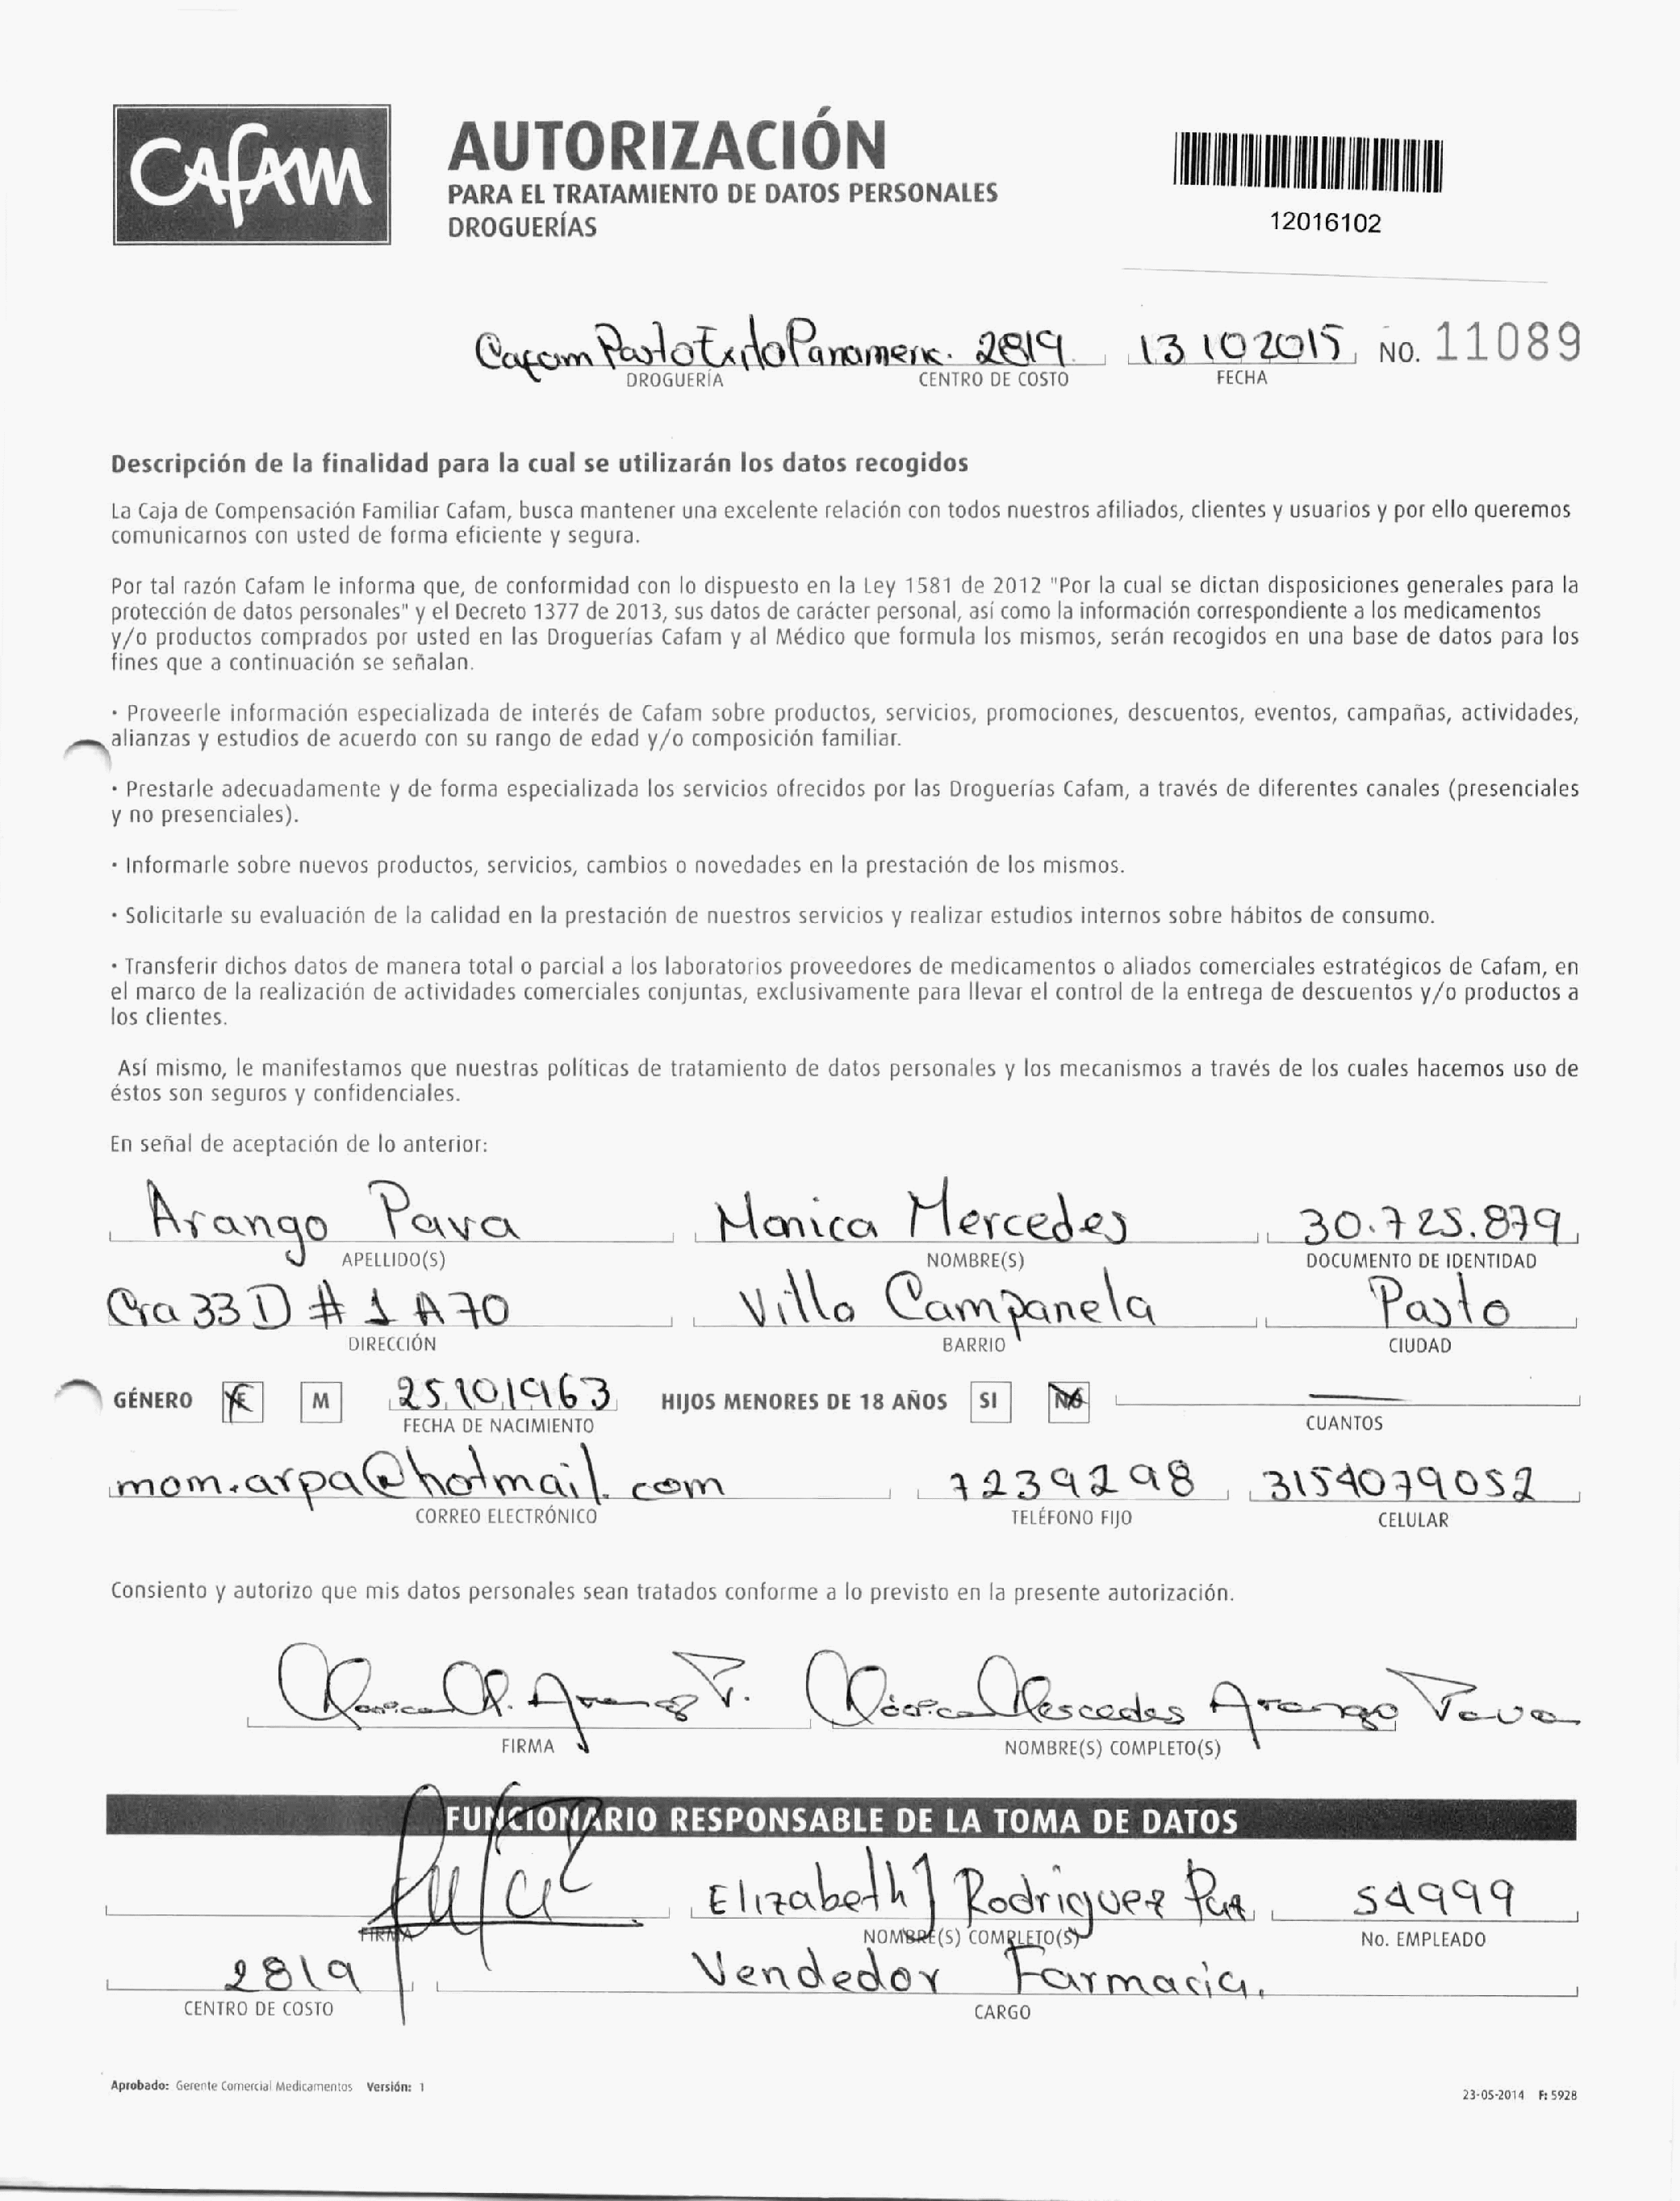 Cafam
AUTORIZACIÓN
PARA EL TRATAMIENTO DE DATOS PERSONALES
DROGUERÍAS
12016102
Cafam Pasto Exito Panameric. 2819 13 10 2015 NO. 11089
DROGUERÍA CENTRO DE COSTO FECHA
Descripción de la finalidad para la cual se utilizarán los datos recogidos
La Caja de Compensación Familiar Cafam, busca mantener una excelente relación con todos nuestros afiliados, clientes y usuarios y por ello queremos
comunicarnos con usted de forma eficiente y segura.
Por tal razón Cafam le informa que, de conformidad con lo dispuesto en la Ley 1581 de 2012 "Por la cual se dictan disposiciones generales para la
protección de datos personales" y el Decreto 1377 de 2013, sus datos de carácter personal, así como la información correspondiente a los medicamentos
y/o productos comprados por usted en las Droguerías Cafam y al Médico que formula los mismos, serán recogidos en una base de datos para los
fines que a continuación se señalan.
• Proveerle información especializada de interés de Cafam sobre productos, servicios, promociones, descuentos, eventos, campañas, actividades,
alianzas y estudios de acuerdo con su rango de edad y/o composición familiar.
• Prestarle adecuadamente y de forma especializada los servicios ofrecidos por las Droguerías Cafam, a través de diferentes canales (presenciales
y no presenciales).
• Informarle sobre nuevos productos, servicios, cambios o novedades en la prestación de los mismos.
• Solicitarle su evaluación de la calidad en la prestación de nuestros servicios y realizar estudios internos sobre hábitos de consumo.
• Transferir dichos datos de manera total o parcial a los laboratorios proveedores de medicamentos o aliados comerciales estratégicos de Cafam, en
el marco de la realización de actividades comerciales conjuntas, exclusivamente para llevar el control de la entrega de descuentos y/o productos a
los clientes.
Así mismo, le manifestamos que nuestras políticas de tratamiento de datos personales y los mecanismos a través de los cuales hacemos uso de
éstos son seguros y confidenciales.
En señal de aceptación de lo anterior:
Arango Pava Monica Mercedes 30.725.879
APELLIDO(S) NOMBRE(S) DOCUMENTO DE IDENTIDAD
Cra 33 D # 1 A 70 Villa Campanela Pasto
DIRECCIÓN BARRIO CIUDAD
GÉNERO F M 25101963 HIJOS MENORES DE 18 AÑOS SI NO
FECHA DE NACIMIENTO CUANTOS
mom.arpa@hotmail.com 7239298 3154079052
CORREO ELECTRÓNICO TELÉFONO FIJO CELULAR
Consiento y autorizo que mis datos personales sean tratados conforme a lo previsto en la presente autorización.
Monica M. Arango P. Mónica Mercedes Arango Pava
FIRMA NOMBRE(S) COMPLETO(S)
FUNCIONARIO RESPONSABLE DE LA TOMA DE DATOS
Elizabeth J Rodriguez 54999
FIRMA NOMBRE(S) COMPLETO(S) No. EMPLEADO
2819 Vendedor Farmacia.
CENTRO DE COSTO CARGO
Aprobado: Gerente Comercial Medicamentos Versión: 1
23-05-2014 F: 5928